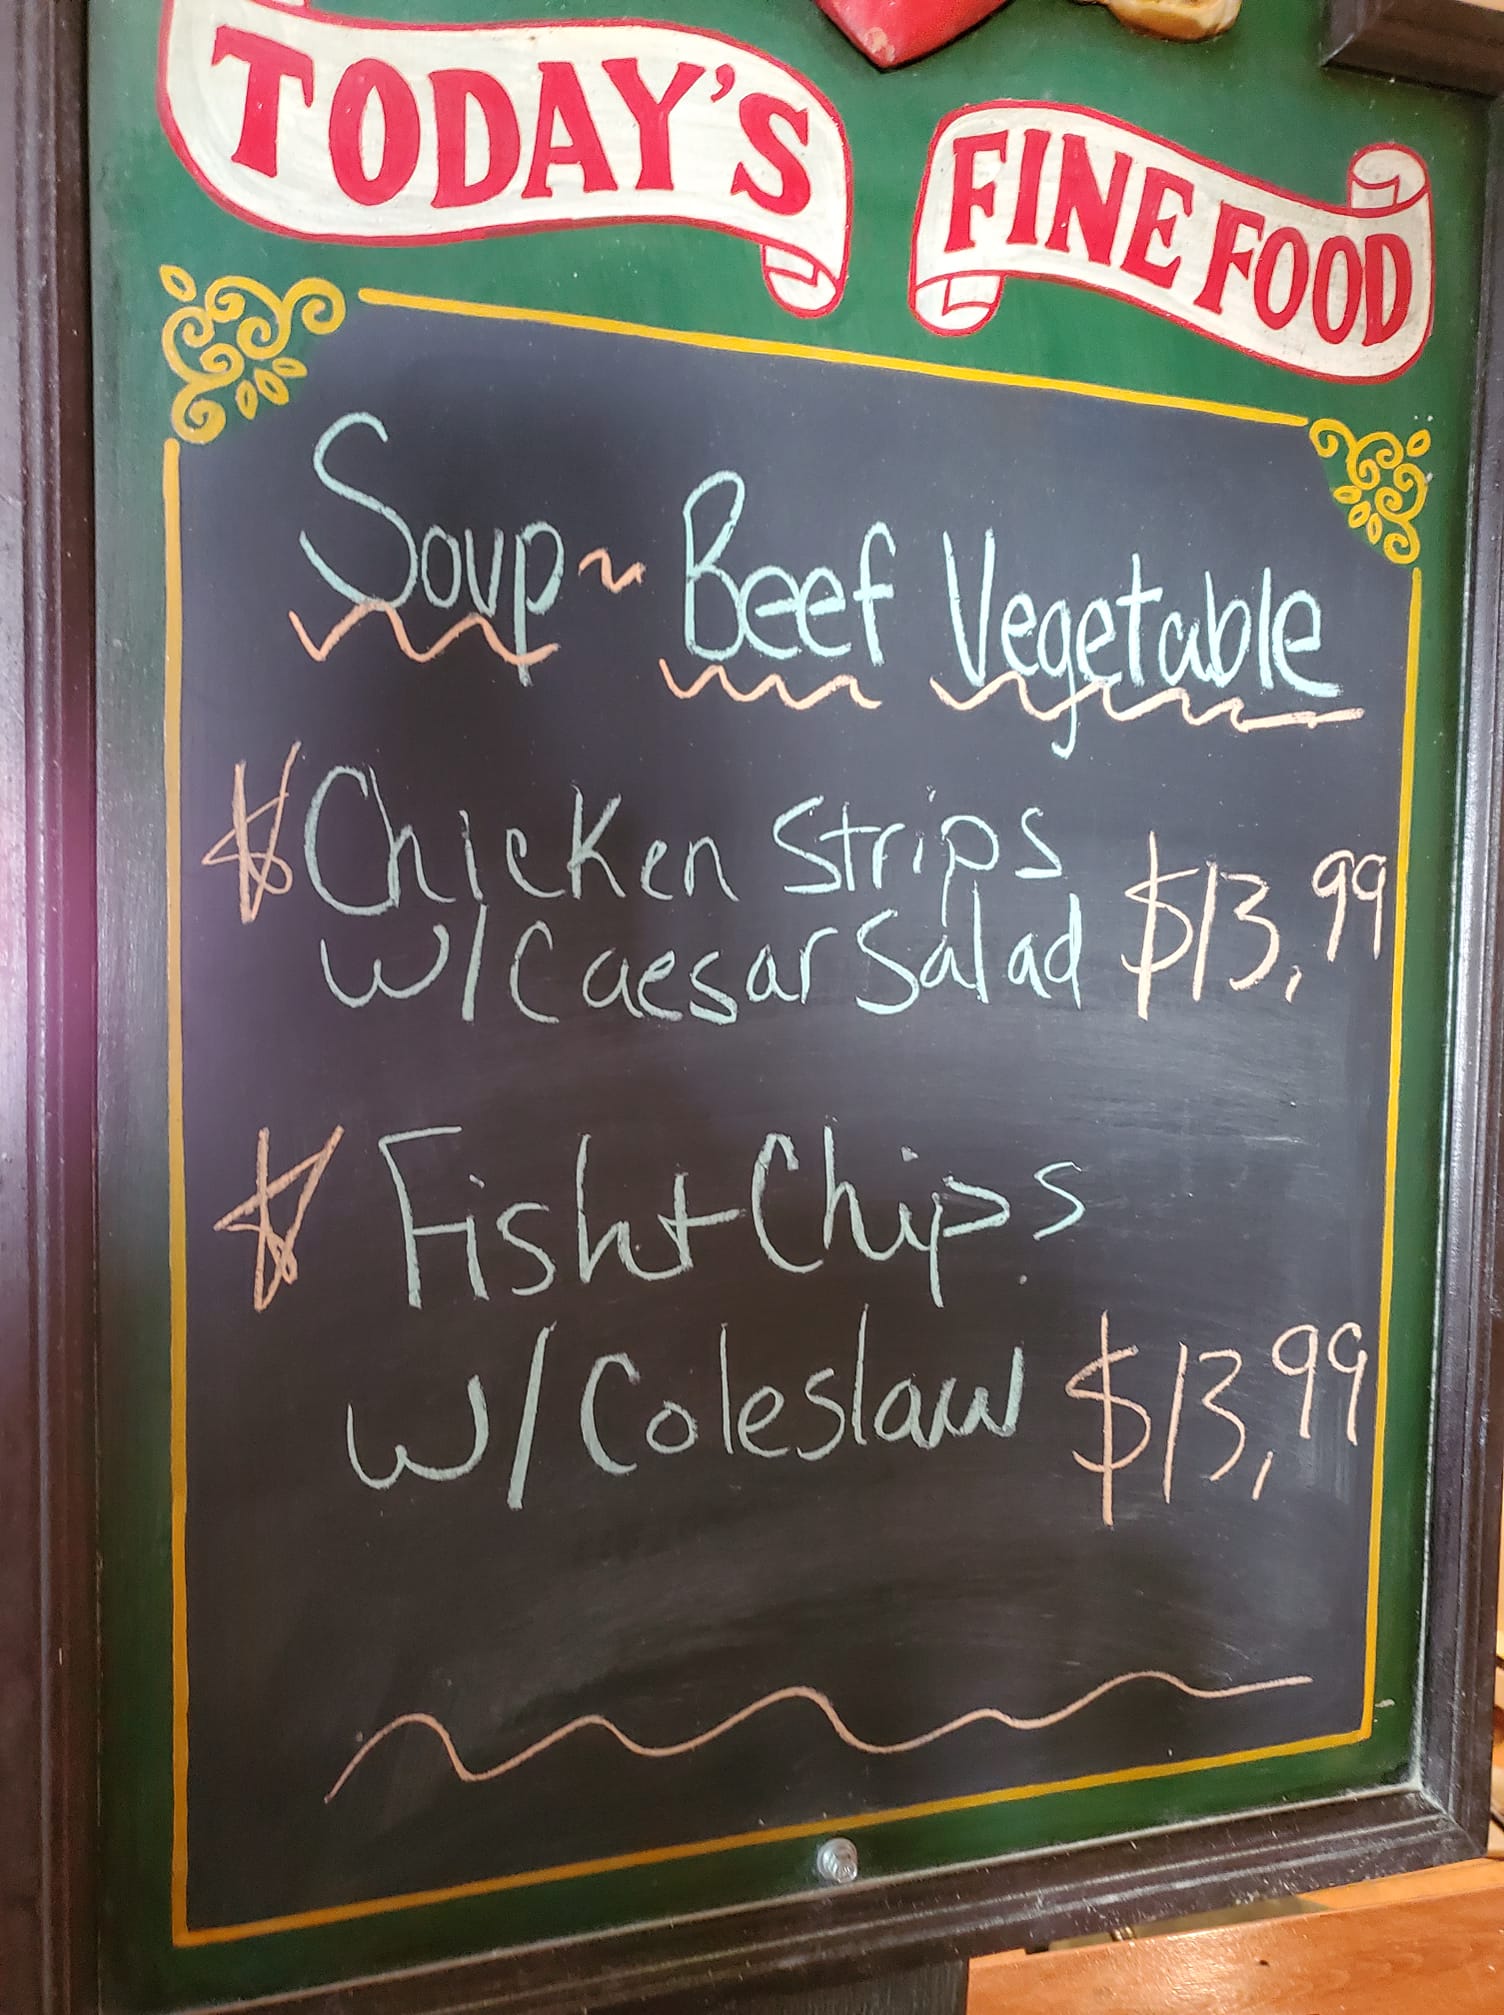 TODAY'S FINE FOOD
Soup ~ Beef Vegetable
Chicken Strips
w/Caesar Salad $13,99
Fish + Chips
w/Coleslaw $13,99